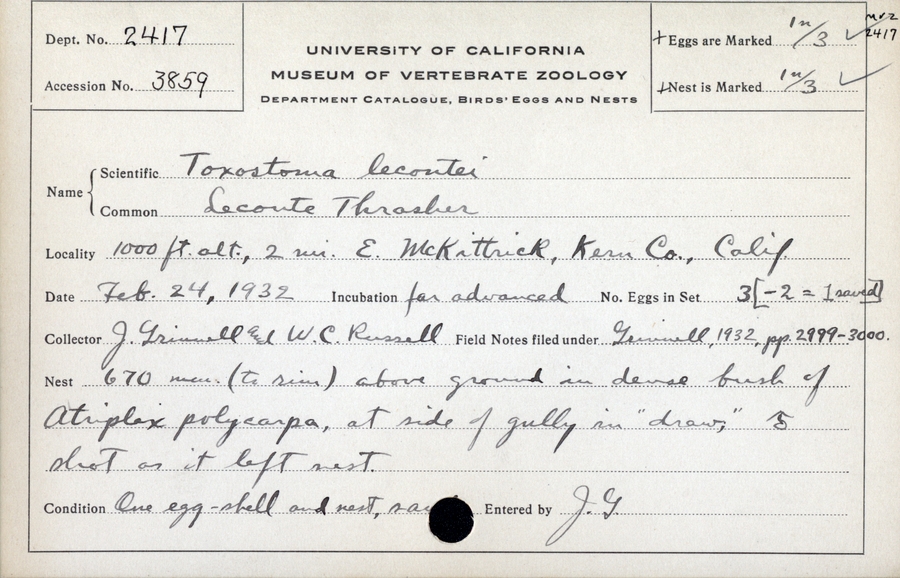 Dept. No. 2417
Accession No. 3859
UNIVERSITY OF CALIFORNIA
MUSEUM OF VERTEBRATE ZOOLOGY
DEPARTMENT CATALOGUE, BIRDS' EGGS AND NESTS
+Eggs are Marked 1n/3 ✓ MVZ 2417
+Nest is Marked 1n/3 ✓
Name
Scientific Toxostoma lecontei
Common Leconte Thrasher
Locality 1000 ft. alt., 2 mi. E. McKittrick, Kern Co., Calif.
Date Feb. 24, 1932 Incubation far advanced No. Eggs in Set 3 [-2 = 1 saved]
Collector J. Grinnell and W.C. Russell Field Notes filed under Grinnell, 1932, pp. 2999-3000.
Nest 670 mm. (to rim) above ground in dense bush of
Atriplex polycarpa, at side of gully in "draw;"
shot as it left nest.
Condition One egg-shell and nest, Entered by J. G.